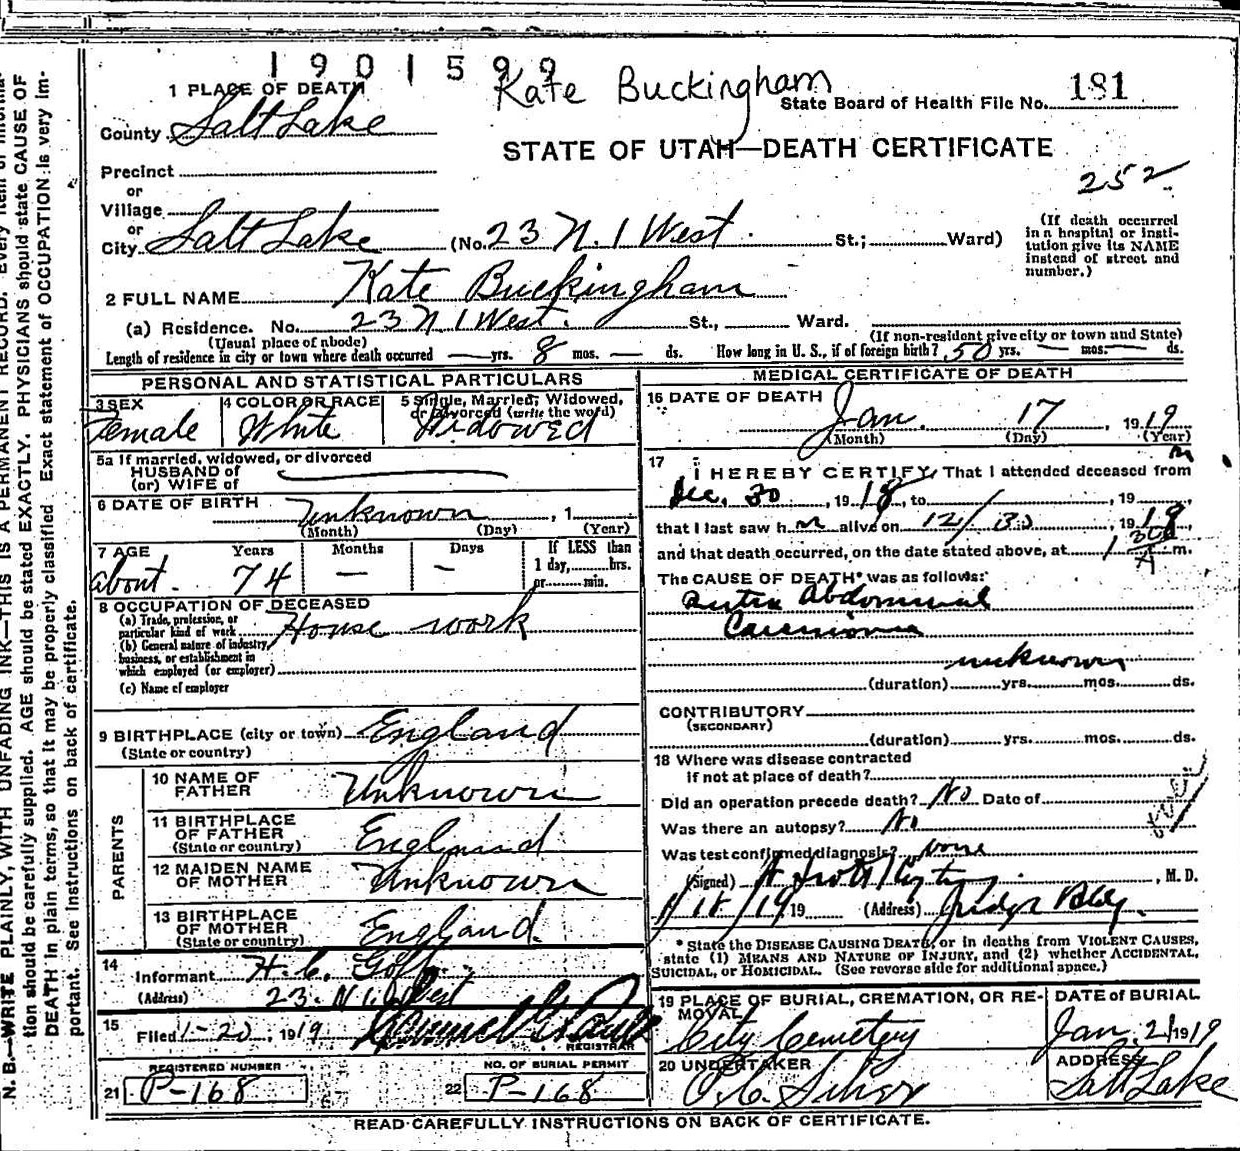 1901599
Kate Buckingham
1 PLACE OF DEATH
State Board of Health File No. 181
County Salt Lake
STATE OF UTAH—DEATH CERTIFICATE
252
Precinct
or
Village
or
City Salt Lake (No. 23 N. 1 West. St.; Ward)
(If death occurred in a hospital or institution give its NAME instead of street and number.)
2 FULL NAME Kate Buckingham
(a) Residence. No. 23 N 1 West. St., Ward.
(Usual place of abode) (If non-resident give city or town and State)
Length of residence in city or town where death occurred — yrs. 8 mos. — ds. How long in U. S., if of foreign birth? 50 yrs. — mos. — ds.
PERSONAL AND STATISTICAL PARTICULARS
3 SEX Female
4 COLOR OR RACE White
5 Single, Married, Widowed, or divorced (write the word) Widowed
5a If married, widowed, or divorced
HUSBAND of
(or) WIFE of
6 DATE OF BIRTH Unknown , 1
(Month) (Day) (Year)
7 AGE Years Months Days If LESS than
about. 74 — — 1 day, hrs.
or min.
8 OCCUPATION OF DECEASED
(a) Trade, profession, or
particular kind of work House work
(b) General nature of industry,
business, or establishment in
which employed (or employer)
(c) Name of employer
9 BIRTHPLACE (city or town) England
(State or country)
PARENTS
10 NAME OF FATHER Unknown
11 BIRTHPLACE OF FATHER England
(State or country)
12 MAIDEN NAME OF MOTHER Unknown
13 BIRTHPLACE OF MOTHER England.
(State or country)
14
Informant H. C. Goff
(Address) 23 N 1 West
15
Filed 1-20, 1919
REGISTRAR
REGISTERED NUMBER
21 P-168
NO. OF BURIAL PERMIT
22 P-168
MEDICAL CERTIFICATE OF DEATH
16 DATE OF DEATH Jan. 17 1919
(Month) (Day) (Year)
17 I HEREBY CERTIFY, That I attended deceased from
Dec. 30, 1918, to , 19
that I last saw h alive on 12/30, 1918,
and that death occurred, on the date stated above, at 1 30 A m.
The CAUSE OF DEATH* was as follows:
Abdominal
Carcinoma
unknown
(duration) yrs. mos. ds.
CONTRIBUTORY
(SECONDARY)
(duration) yrs. mos. ds.
18 Where was disease contracted
if not at place of death?
Did an operation precede death? No Date of
Was there an autopsy? No
Was test confirmed diagnosis? None
(Signed) , M. D.
1/18/19 19 (Address) Judge Bldg.
* State the DISEASE CAUSING DEATH, or in deaths from VIOLENT CAUSES,
state (1) MEANS AND NATURE OF INJURY, and (2) whether ACCIDENTAL,
SUICIDAL, or HOMICIDAL. (See reverse side for additional space.)
19 PLACE OF BURIAL, CREMATION, OR REMOVAL
City Cemetery
DATE OF BURIAL
Jan. 21 1919
20 UNDERTAKER
ADDRESS
Salt Lake
READ CAREFULLY INSTRUCTIONS ON BACK OF CERTIFICATE.
N. B.—WRITE PLAINLY, WITH UNFADING INK—THIS IS A PERMANENT RECORD. Every item of informa-
tion should be carefully supplied. AGE should be stated EXACTLY. PHYSICIANS should state CAUSE OF
DEATH in plain terms, so that it may be properly classified. Exact statement of OCCUPATION is very im-
portant. See instructions on back of certificate.